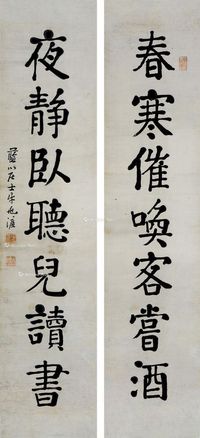 春寒催喚客嘗酒
夜靜臥聽兒讀書